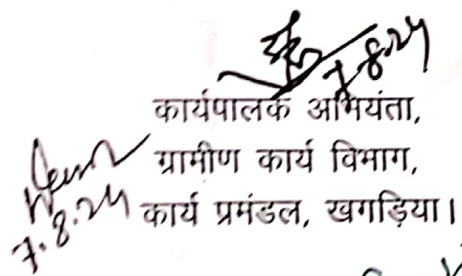 7.8.24
कार्यपालक अभियंता,
ग्रामीण कार्य विभाग,
7.8.24 कार्य प्रमंडल, खगड़िया।